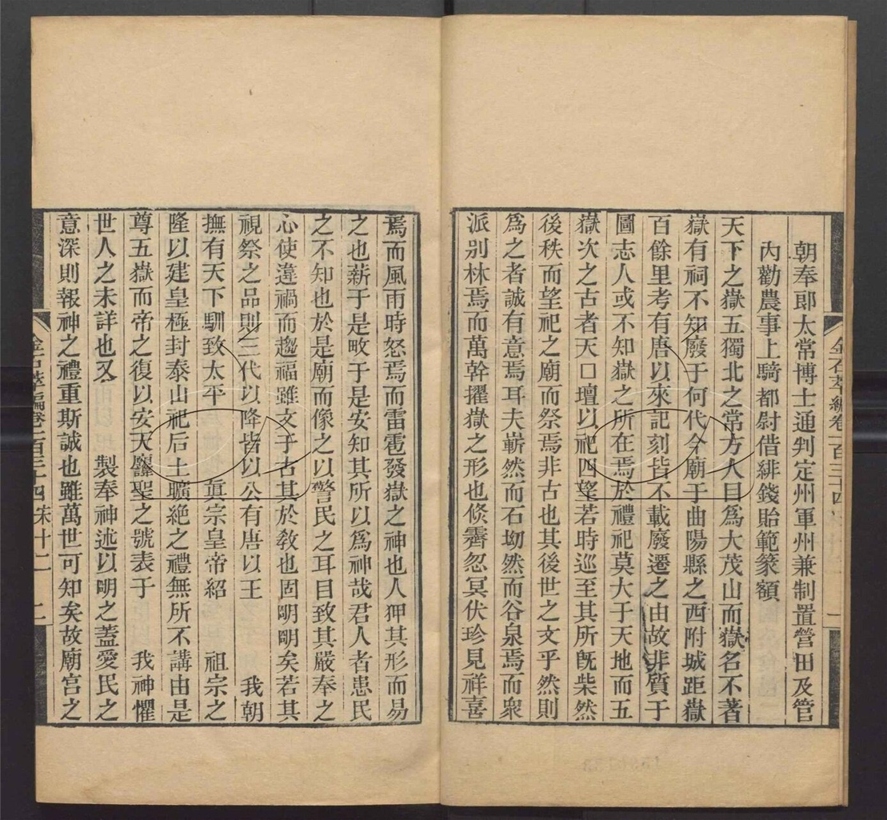 朝奉郎太常博士通判定州軍州兼制置營田及管
內勸農事上騎都尉借緋錢貽範篆額
天下之嶽五獨北之常方人目爲大茂山而嶽名不著
嶽有祠不知廢于何代今廟于曲陽縣之西附城距嶽
百餘里考有唐以來記刻皆不載廢遷之由故非質于
圖志人或不知嶽之所在焉於禮祀莫大于天地而五
嶽次之古者天口壇以祀四望若時巡至其所旣柴然
後秩而望祀之廟而祭焉非古也其後世之文乎然則
爲之者誠有意焉耳夫嶄然而石坳然而谷泉焉而衆
派别林焉而萬幹擢嶽之形也倏霽忽冥伏珍見祥喜
焉而風雨時怒焉而雷雹發嶽之神也人狎其形而易
之也薪于是畋于是安知其所以爲神哉君人者患民
之不知也於是廟而像之以警民之耳目致其嚴奉之
心使違禍而趨福雖文于古其於敎也固明明矣若其
視祭之品則三代以降皆以公有唐以王 我朝
撫有天下馴致太平 眞宗皇帝紹 祖宗之
隆以建皇極封泰山祀后土曠絶之禮無所不講由是
尊五嶽而帝之復以安天 聖之號表于 我神懼
世人之未詳也又 製奉神述以明之蓋愛民之
意深則報神之禮重斯誠也雖萬世可知矣故廟宮之
金石萃編卷一百三十四 宋十二 二